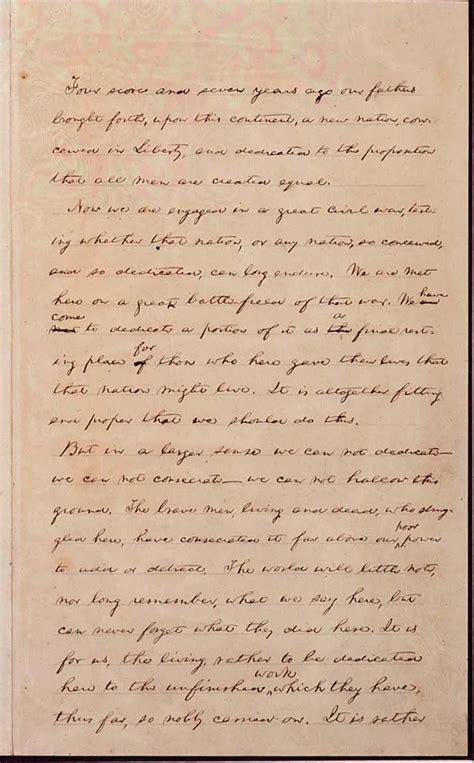 Four score and seven years ago our fathers
brought forth, upon this continent, a new nation, con-
ceived in Liberty, and dedicated to the proposition
that all men are created equal.
Now we are engaged in a great civil war, test-
ing whether that nation, or any nation, so conceived,
and so dedicated, can long endure. We are met
here on a great battle-field of that war. We have
come met to dedicate a portion of it as a the final rest-
ing place for of those who here gave their lives that
that nation might live. It is altogether fitting
and proper that we should do this.
But in a larger sense we can not dedicate—
we can not consecrate— we can not hallow this
ground. The brave men, living and dead, who strug-
gled here, have consecrated it far above our poor power
to add or detract. The world will little note,
nor long remember, what we say here, but
can never forget what they did here. It is
for us, the living, rather to be dedicated
here to the unfinished work which they have,
thus far, so nobly carried on. It is rather